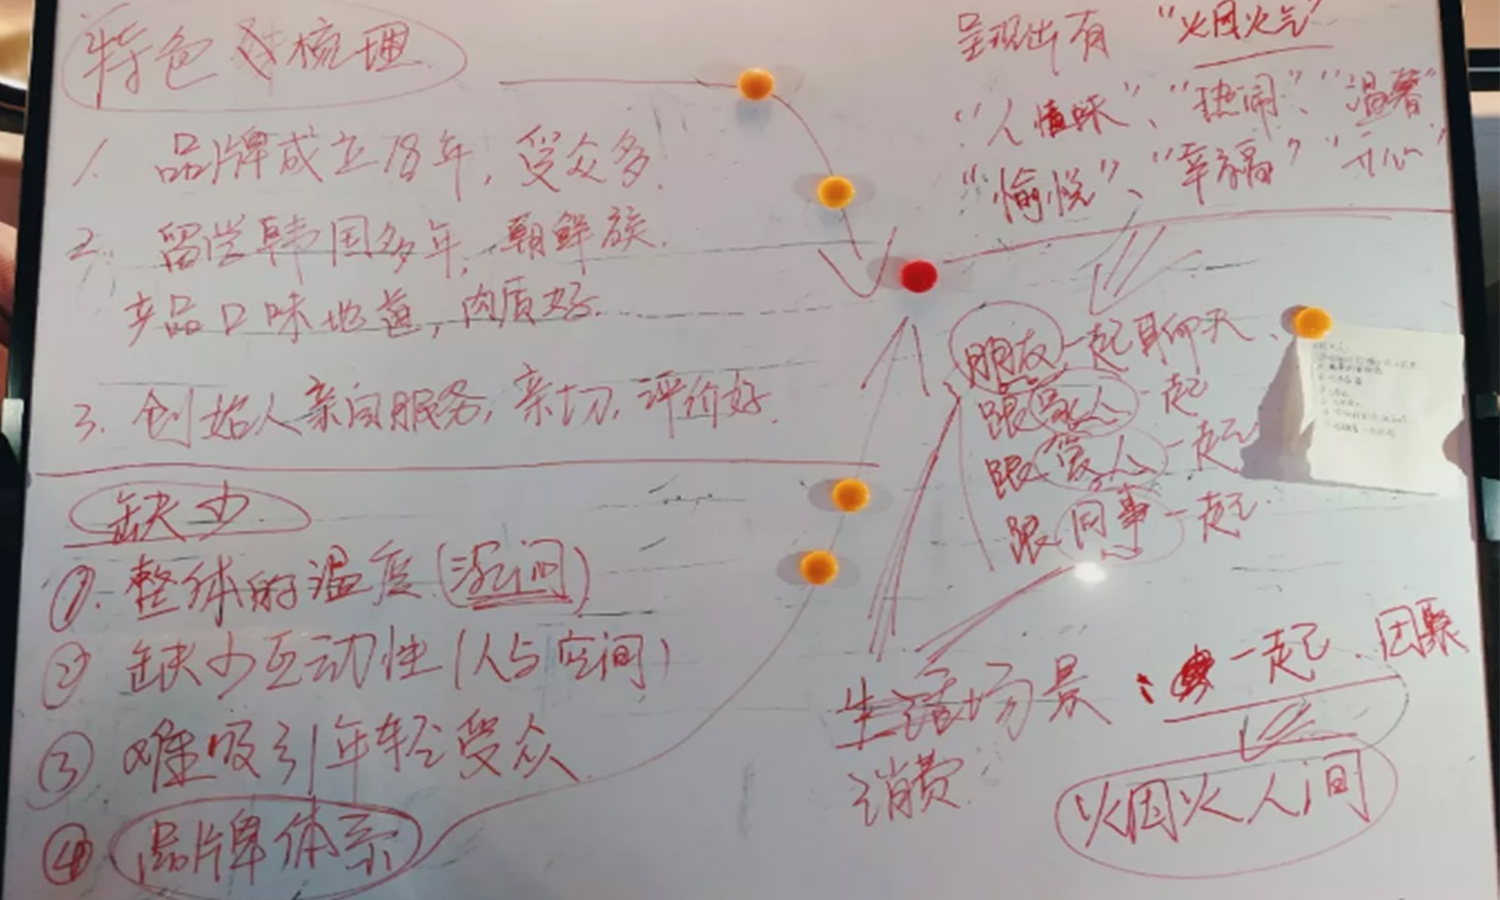 特色梳理
1. 品牌成立18年，受众多.
2. 留学韩国多年，朝鲜族.
产品口味地道，肉质好.
3. 创始人亲自服务，亲切，评价好.
缺少
①. 整体的温度
② 缺少互动性（人与空间）
③ 难吸引年轻受众
④ 品牌体系
呈现出有“火因火气”
“人情味”、“热闹”、“温馨”
“愉悦”、“幸福”“开心”
朋友一起聊天、
跟家人一起
跟爱人一起
跟同事一起.
生活场景：一起、团聚
消费
火因火人间